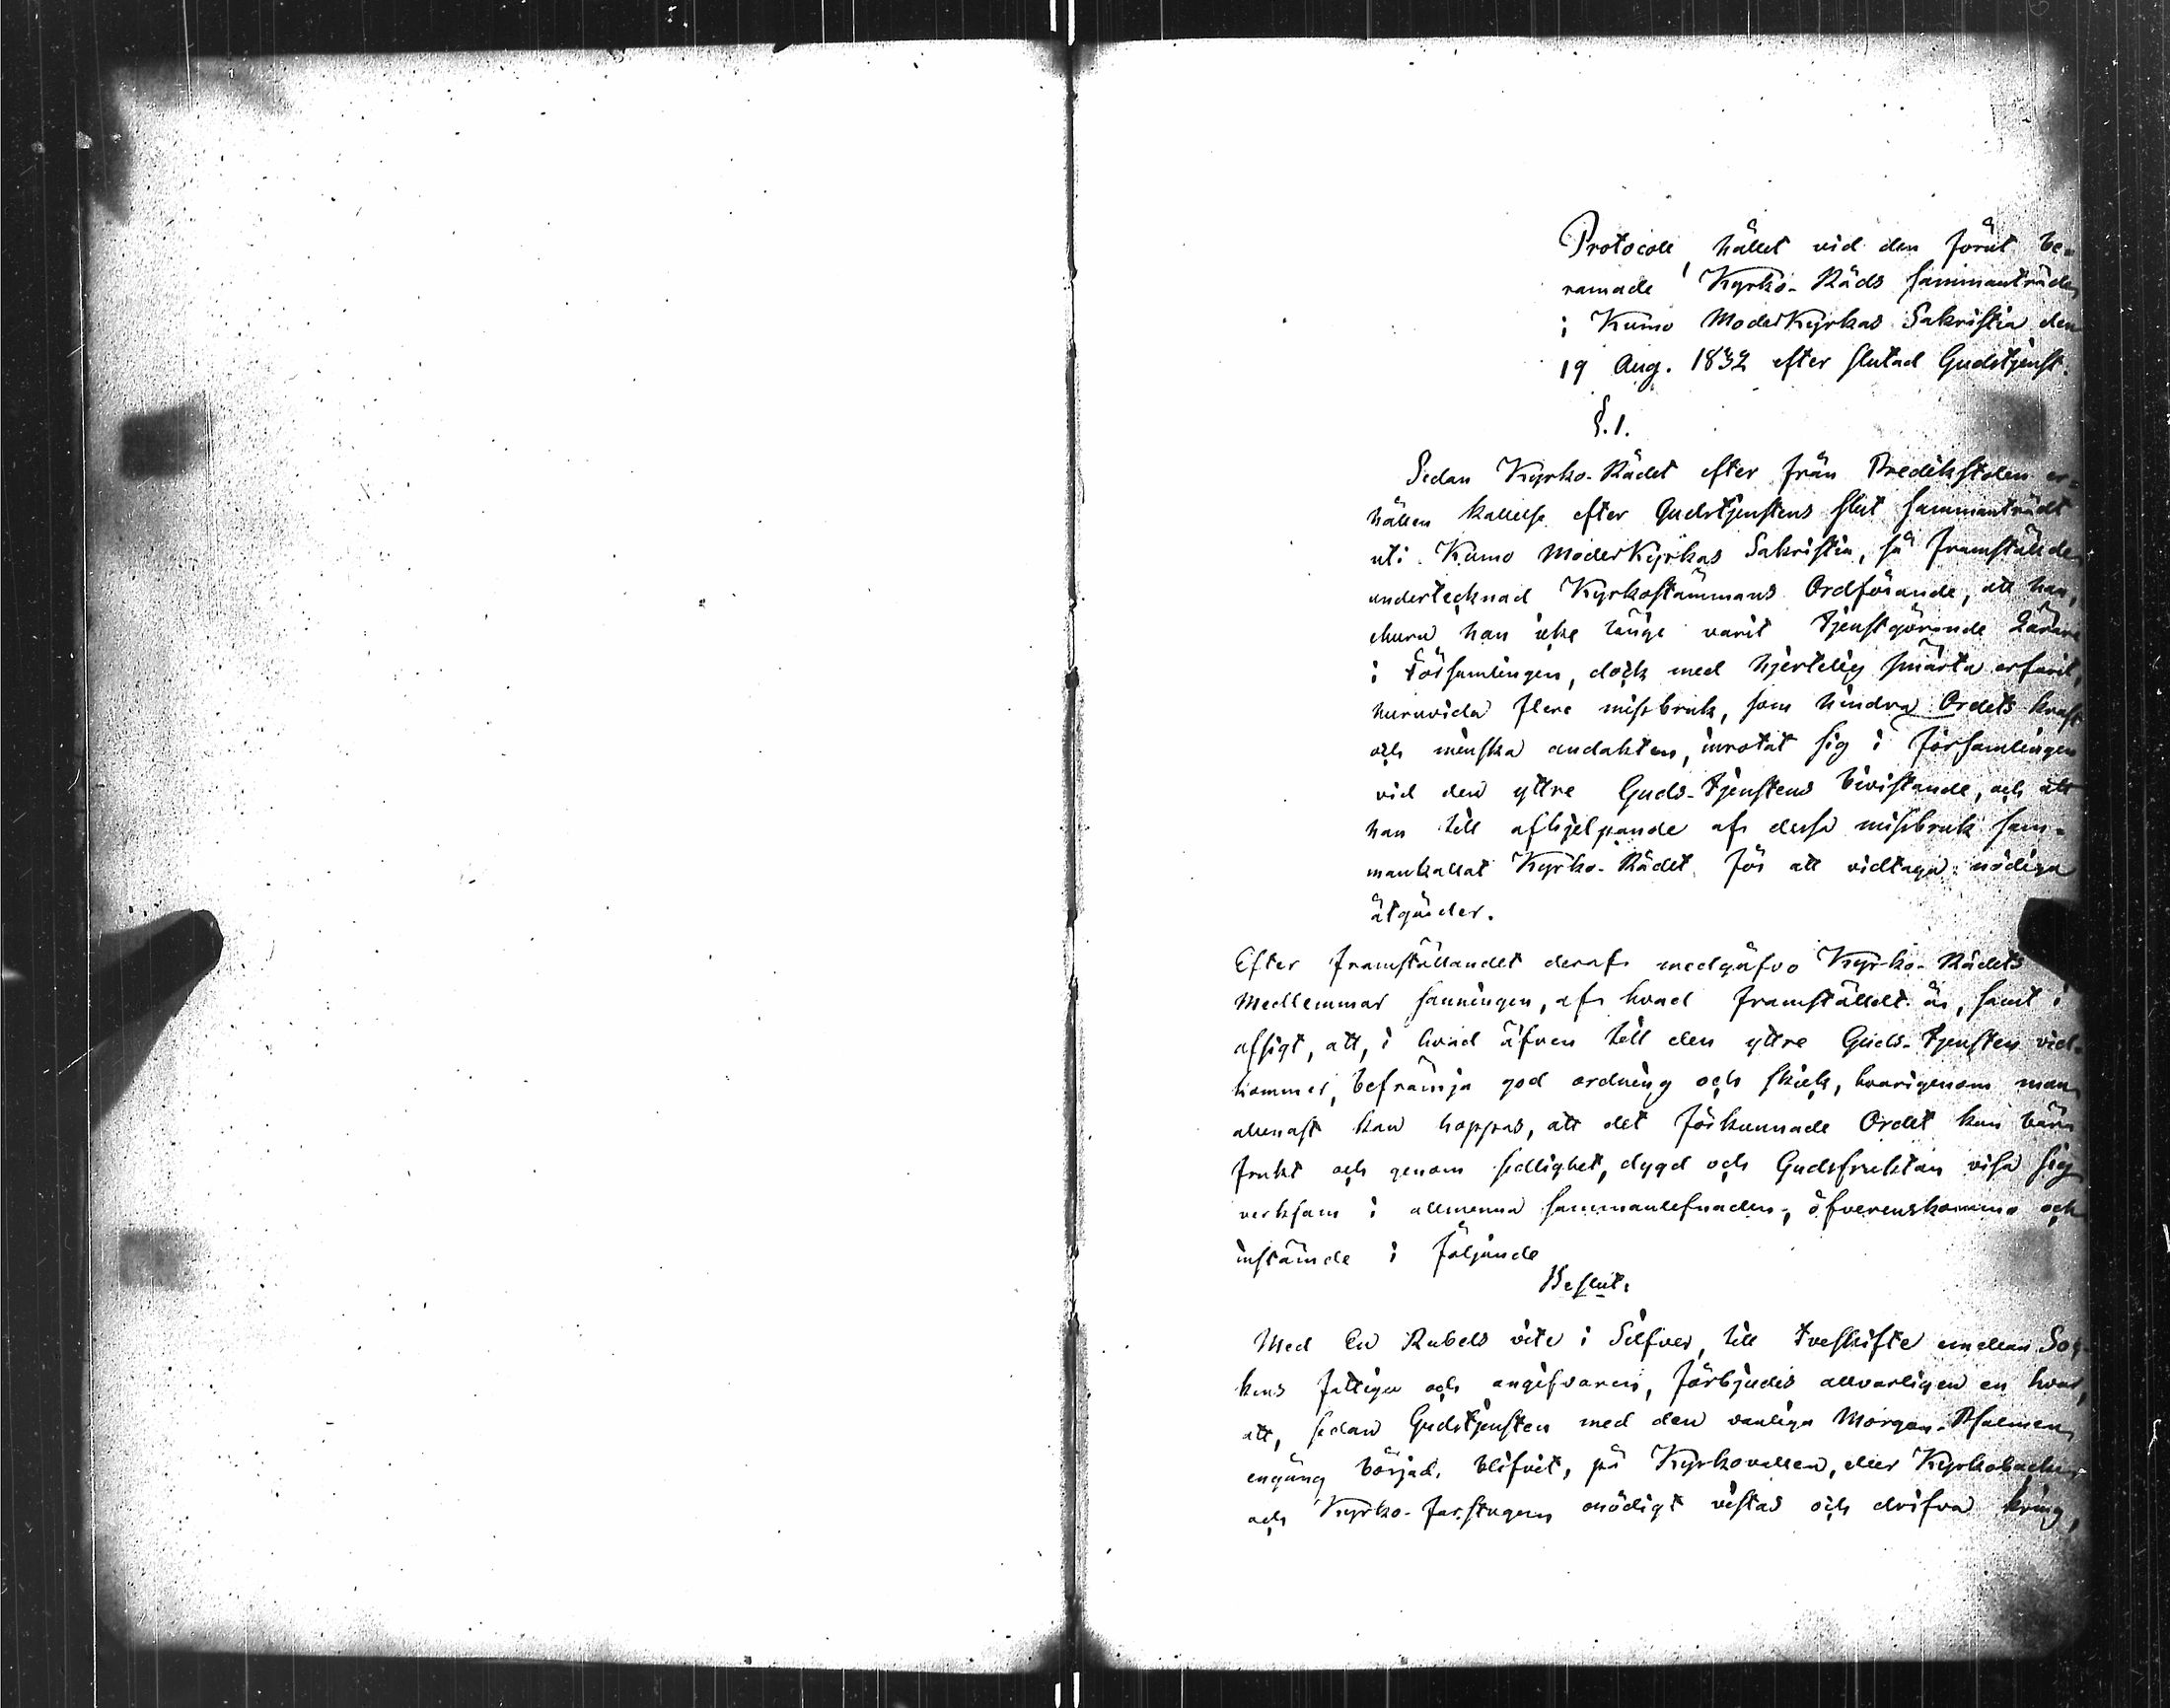 Protocoll, hållet vid den förut be-
ramade Kyrko-Råds sammanträde
i Kumo ModerKyrkas Sakristia den
19 Aug. 1832 efter slutad Gudstjenst.
§. 1.
Sedan Kyrko-Rådet efter från Predikstolen er-
hållen kallelse efter Gudstjenstens slut sammanträdt
uti Kumo ModerKyrkas Sakristia, så framställde
undertecknad Kyrkostämmans Ordförande, att han,
ehuru han icke länge varit Tjenstgörande Lärare
i Församlingen, dock med hjertelig smärta erfarit,
huruvida flere missbruk, som hindra Ordets kraft
och minska andakten, inrotat sig i församlingen
vid den yttre Guds-Tjenstens bivistande, och att
han till afhjelpande af dessa missbruk sam-
mankallat Kyrko-Rådet för att vidtaga nödiga
åtgärder.
Efter framställandet deraf medgåfvo Kyrko-Rådets
Medlemmar sanningen, af hvad framställdt är, samt i
afsigt, att, i hvad äfven till den yttre Guds-Tjensten vid-
kommer, befrämja god ordning och skick, hvarigenom man
allenast kan hoppas, att det förkunnade Ordet kan bära
frukt och genom sedlighet, dygd och Gudsfruktan visa sig
verksam i allmenna sammanlefnaden, öfverenskommo och
instämde i följande
Beslut.
Med En Rubels vite i Silfver, till tveskifte emellan Soc-
kens fattiga och angifvaren, förbjudes allvarligen en hvar,
att, sedan Gudstjensten med den vanliga Morgon-Psalmen
engång börjad blifvit, på Kyrkovallen, eller Kyrkobacken
och Kyrko-farstugun onödigt vistas och drifva kring,